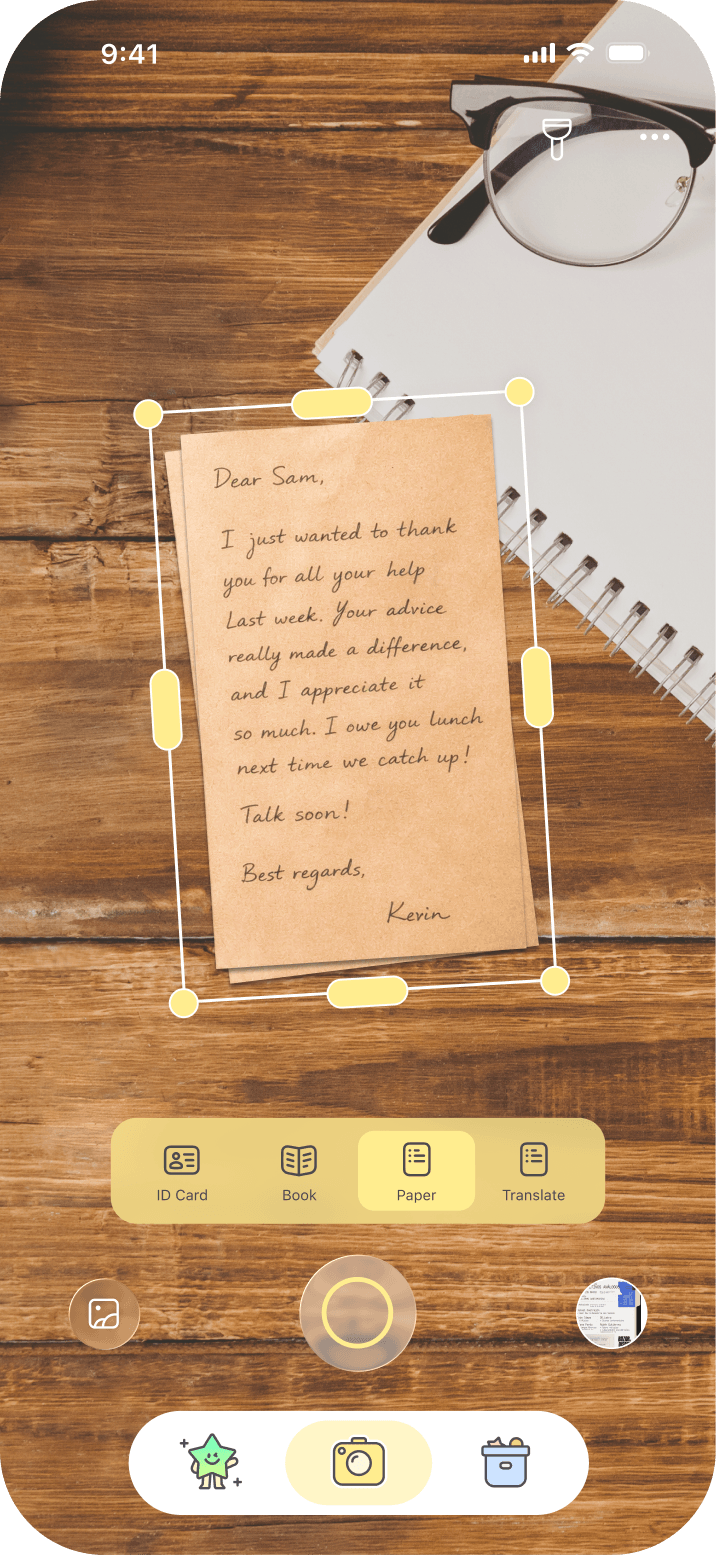 9:41
Dear Sam,
I just wanted to thank
you for all your help
Last week. Your advice
really made a difference,
and I appreciate it
so much. I owe you lunch
next time we catch up!
Talk soon!
Best regards,
Kevin
ID Card
Book
Paper
Translate